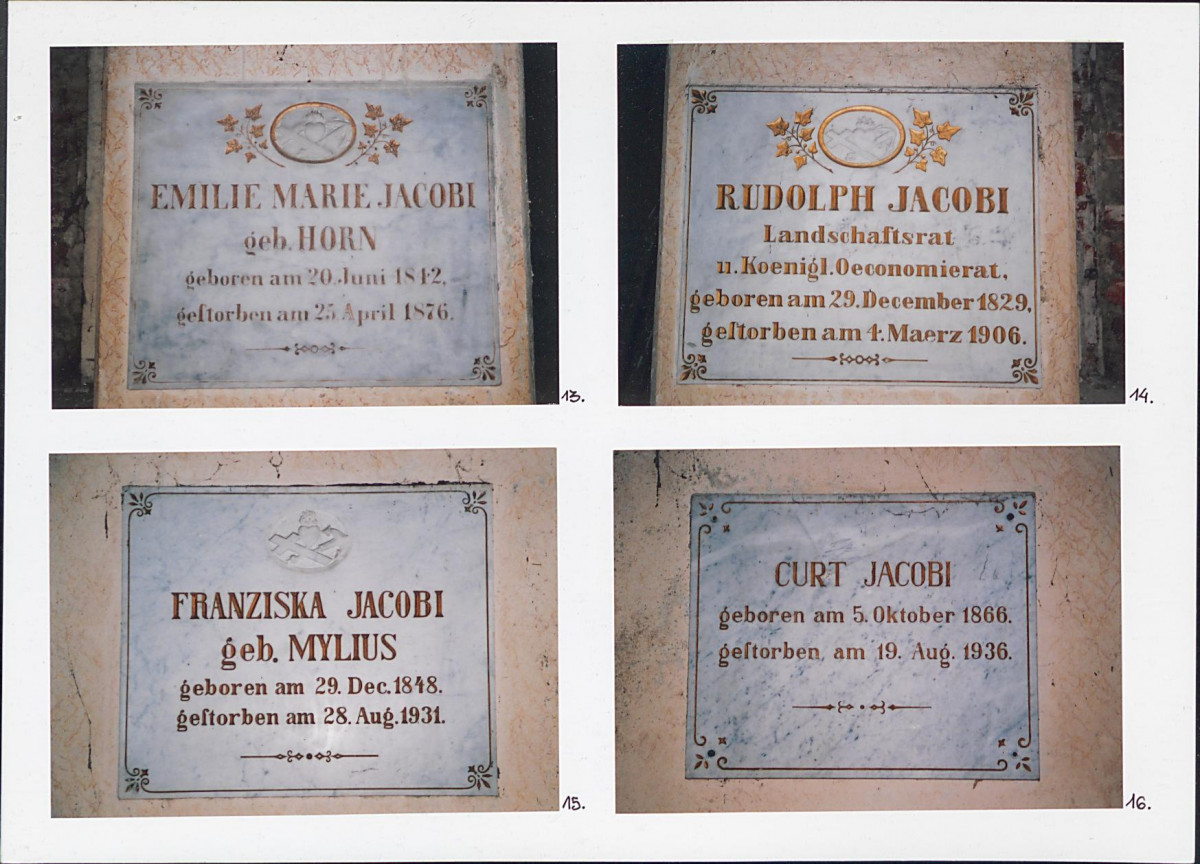 EMILIE MARIE JACOBI
geb. HORN
geboren am 20. Juni 1842.
geſtorben am 25. April 1876.
13.
RUDOLPH JACOBI
Landschaftsrat
u. Koenigl. Oeconomierat,
geboren am 29. December 1829,
geſtorben am 4. Maerz 1906.
14.
FRANZISKA JACOBI
geb. MYLIUS
geboren am 29. Dec. 1848.
geſtorben am 28. Aug. 1931.
15.
CURT JACOBI
geboren am 5. Oktober 1866.
geſtorben am 19. Aug. 1936.
16.